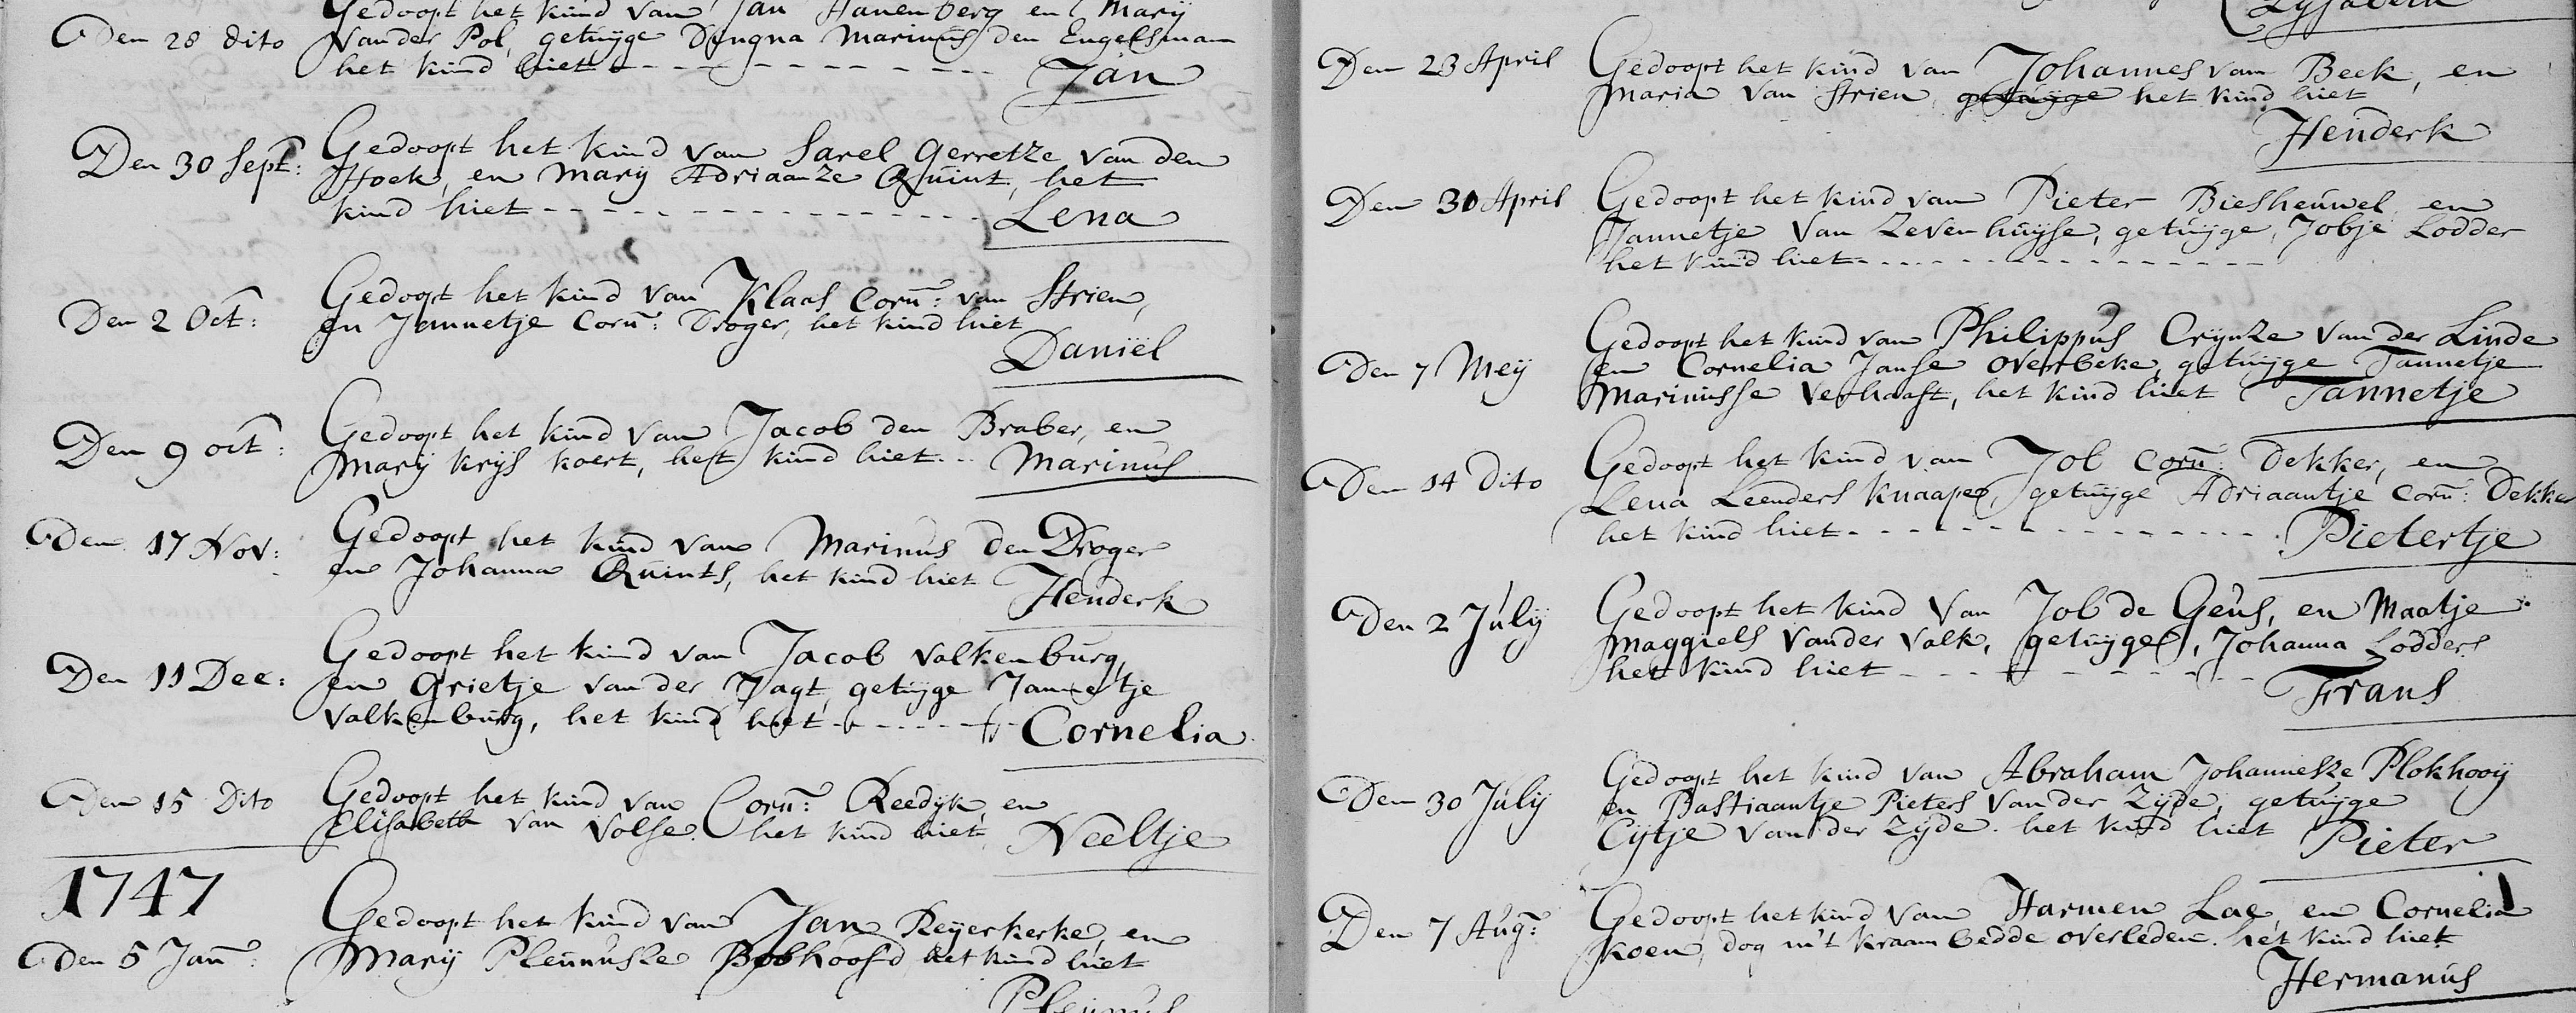 Gedoopt het kind van Jan Hanenberg en Marij
Den 28 dito van der Pol, getuijge Dingna Marinus den Engelsman
het kind hiet - - - - - - - - - - - Jan
Gedoopt het kind van Sarel Gerretze van den
Den 30 Sept: Hoek, en Marij Adriaanze Quint, het
kind hiet - - - - - - - - - - - - - - Lena
Gedoopt het kind van Klaas Corn: van Strien,
Den 2 Oct: en Jannetje Corn: Droger, het kind hiet
Daniël
Gedoopt het kind van Jacob den Braber, en
Den 9 oct: Marij Krijs Koert, het kind hiet - - Marinus
Den 17 Nov: Gedoopt het kind van Marinus den Droger
en Johanna Quints, het kind hiet
Henderk
Gedoopt het kind van Jacob Valkenburg,
Den 11 Dec: en Grietje van der Jagt, getuijge Jannetje
Valkenburg, het kind hiet - - - - - - Cornelia
Den 15 Dito Gedoopt het kind van Corn: Reedijk, en
Elisabeth van Volse. het kind hiet Neeltje
1747
Gedoopt het kind van Jan Reijerkerke, en
Den 5 Jan: Marij Pleunusze Bobhoofd het kind hiet
Pleunus
Lijsabeth
Den 23 April Gedoopt het kind van Johannes van Beek, en
Maria van Strien, getuijge het kind hiet
Henderk
Den 30 April Gedoopt het kind van Pieter Biesheuwel en
Jannetje van Zevenhuijse, getuijge, Jobje Lodder
het kind hiet - - - - - - - - - - - - - -
Gedoopt het kind van Philippus Crijnze van der Linde
Den 7 Meij en Cornelia Janse Overbeke, getuijge Tannetje
Marinusse Verhaast, het kind hiet Tannetje
Gedoopt het kind van Job Corn: Dekker, en
Den 14 Dito Lena Leenders Knaape, getuijge Adriaantje Corn: Dekker
het kind hiet - - - - - - - - - - - - - - Pietertje
Den 2 Julij Gedoopt het kind van Job de Geus, en Maatje
Maggiels van der Valk, getuijge, Johanna Lodders
het kind hiet - - - - - - - - - - -
Frans
Gedoopt het kind van Abraham Johannesze Plokhooij
Den 30 Julij en Bastiaantje Pieters van der Zijde, getuijge
Cijtje van der Zijde. het kind hiet Pieter
Gedoopt het kind van Harmen Lae, en Cornelia
Den 7 Aug: Koen, dog in't kraambedde overleden. het kind hiet
Hermanus